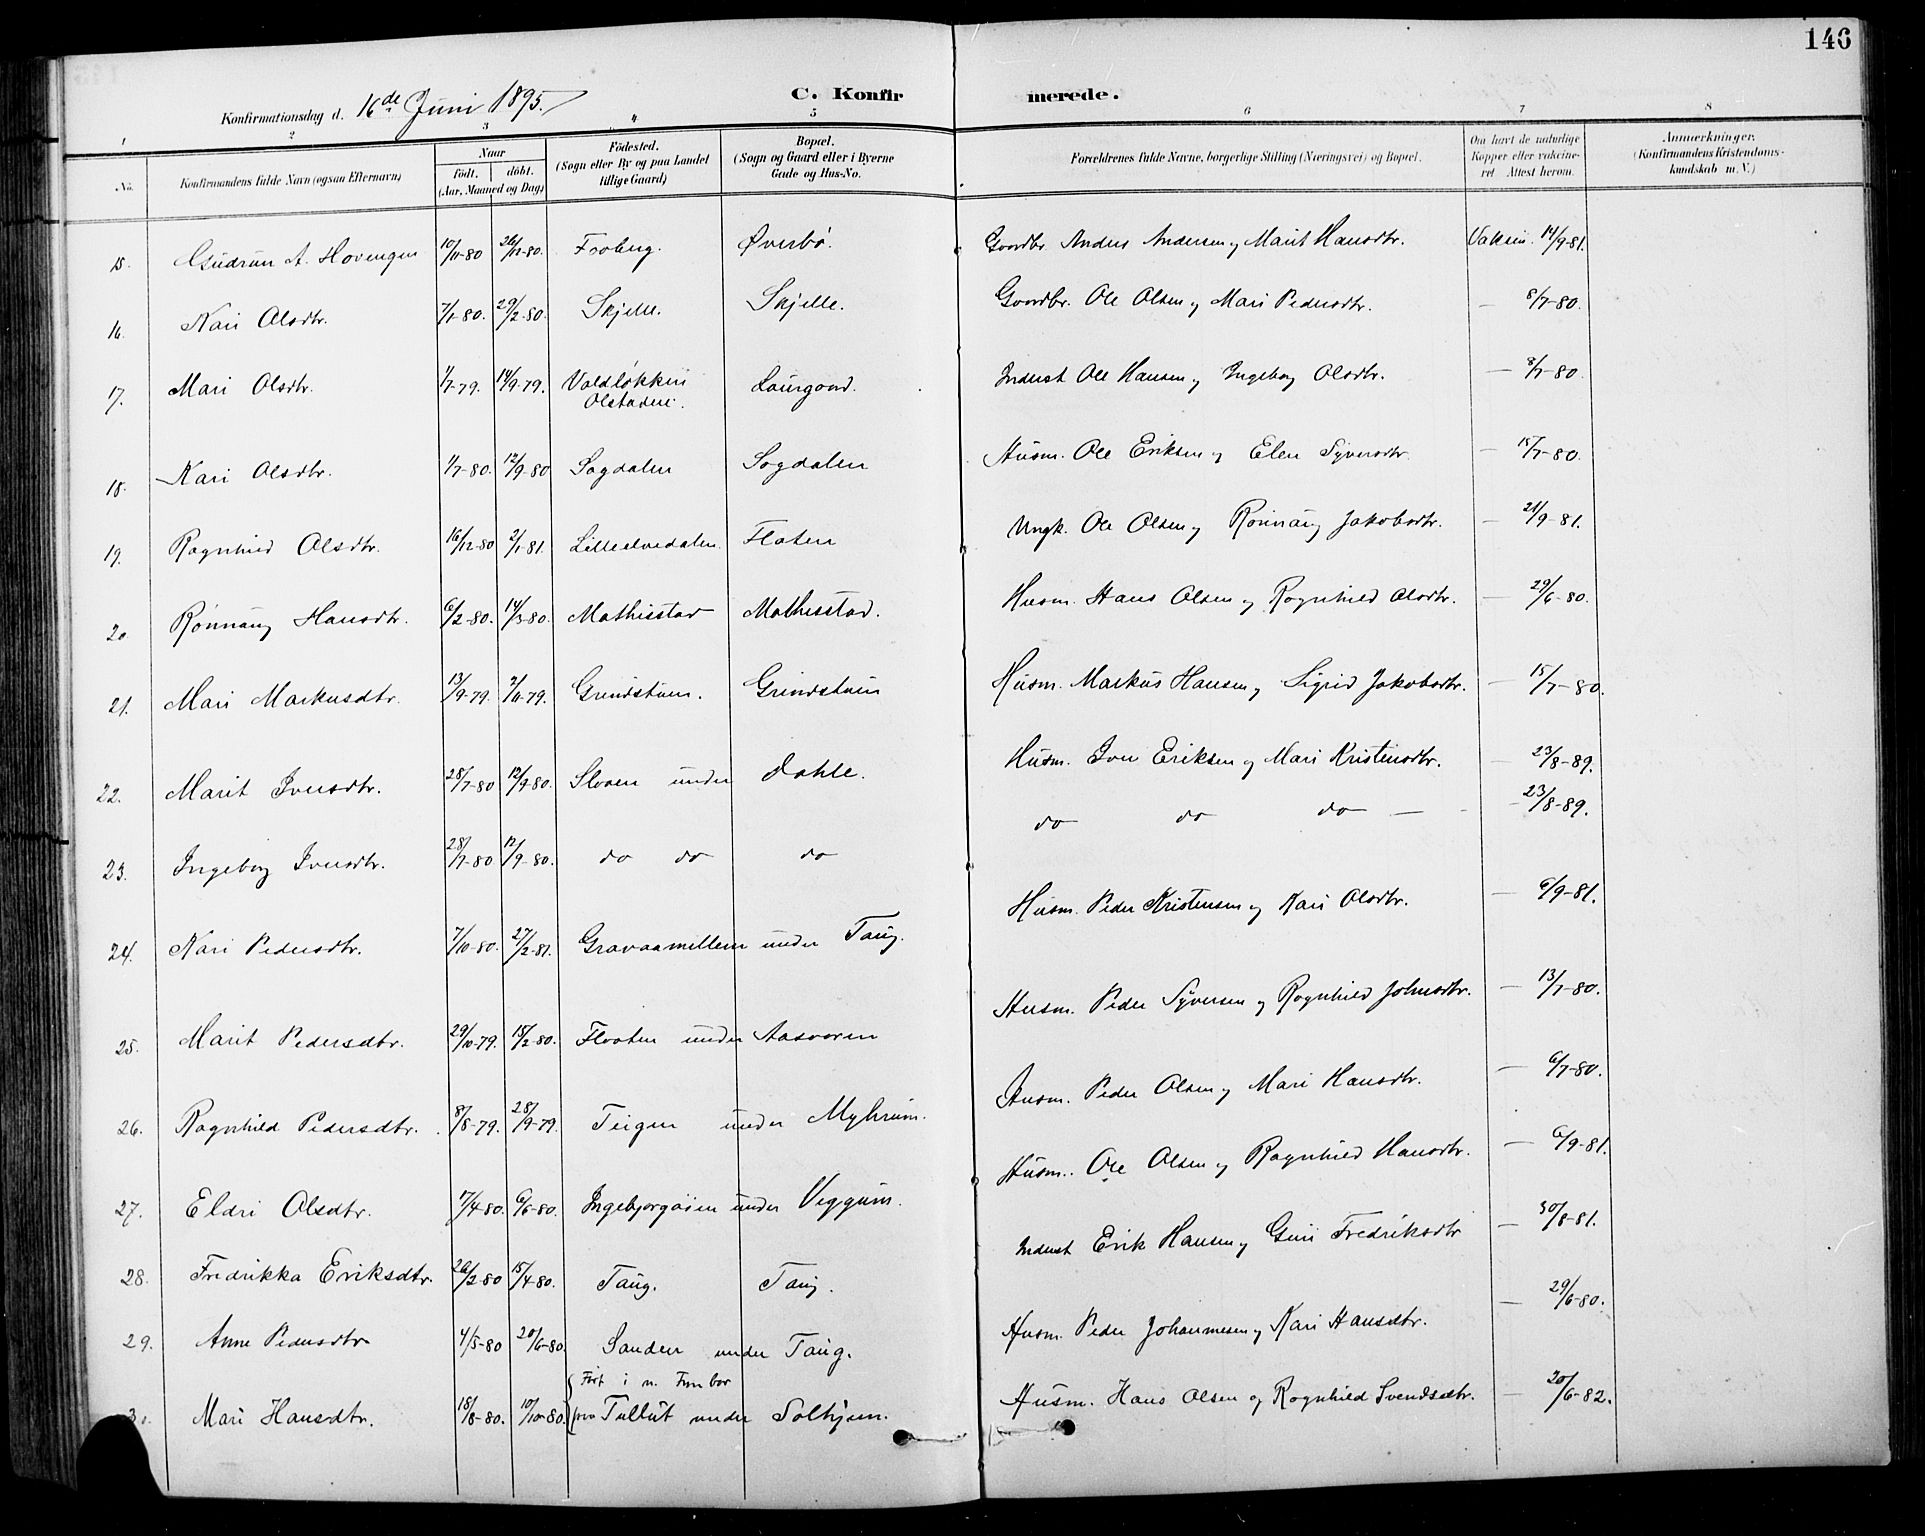 146
C. Konfirmerede.
Konfirmationsdag d. 16de Juni 1895.
1 2 3 4 5 6 7 8
No. Konfirmandens fulde Navn (ogsaa Efternavn) Naar födt. döbt. (Aar, Maaned og Dag) Födested. (Sogn eller By og paa Landet tillige Gaard) Bopæl. (Sogn og Gaard eller i Byerne Gade og Hus-No. Forældrenes fulde Navne, borgerlige Stilling (Næringsvei) og Bopæl. Om havt de naturlige Kopper eller vakcineret Attest herom. Anmærkninger. (Konfirmandens Kristendomskundskab m. V.)
15. Gudrun A. Hovengen 10/11-80 26/12-80. Froberg. Øverbö. Gaardbr. Anders Andersen og Marit Hansdtr. Vaksin. 14/9-81.
16. Kari Olsdtr. 7/1-80. 29/2-80. Skjelle. Skjelle. Gaardbr. Ole Olsen og Mari Pedersdtr. — 8/7-80.
17. Mari Olsdtr. 1/7-79. 14/9-79. Valdløkken Olstaden. Laurgaard. Inderst Ole Hansen og Ingeborg Olsdtr. — 8/7-80.
18. Kari Olsdtr. 1/7-80. 12/9-80 Sogdalen Sogdalen Husm. Ole Eriksen og Elen Syversdtr. — 15/7-80.
19. Ragnhild Olsdtr. 16/12-80 2/1-81. Lilleelvedalen Flaten Ungk. Ole Olsen og Rönnaug Jakobsdtr. — 21/9-81.
20. Rønnaug Hansdtr. 6/2-80. 14/3-80. Mathisstad Mathisstad. Husm. Hans Olsen og Ragnhild Olsdtr. — 29/6-80.
21. Mari Markusdtr. 13/9-79. 2/11-79. Grindstuen. Grindstuen Husm. Markus Hansen og Sigrid Jakobsdtr. — 15/7-80.
22. Marit Iversdtr. 28/7-80 12/9-80. Sloaen under Dahle. Husm. Iver Eriksen og Mari Kristensdtr. — 23/8-89.
23. Ingeborg Iversdtr. 28/7-80 12/9-80. do do do do do do — - 23/8-89.
24. Kari Pedersdtr. 7/10-80. 27/2-81. Gravaamellem under Taug. Husm. Peder Kristensen og Kari Olsdtr. — 6/9-81.
25. Marit Pedersdtr. 29/10-79. 15/2-80. Flaaten under Aasaaren Husm. Peder Syversen og Ragnhild Johnsdtr. — 13/7-80.
26. Ragnhild Pedersdtr. 8/8-79. 28/9-79. Teigen under Myhrum. Husm. Peder Olsen og Mari Hansdtr. — 6/7-80.
27. Eldri Olsdtr. 7/4-80. 6/6-80. Ingebjørgøien under Veggum. Husm. Ole Olsen og Ragnhild Hansdtr. — 6/9-81.
28. Fredrikka Eriksdtr. 26/2-80 15/4-80. Taug. Taug. Inderst Erik Hansen og Guri Fredriksdtr — 30/8-81.
29. Anne Pedersdtr 4/5-80 20/6-80. Sanden under Taug. Husm. Peder Johannesen og Kari Hansdtr. — 29/6-80.
30. Mari Hansdtr. 18/8-80. 10/10-80. Født i n. Fron bor paa Tullut under Solhjem. Husm. Hans Olsen og Ragnhild Svendsdtr. — 20/6-82.